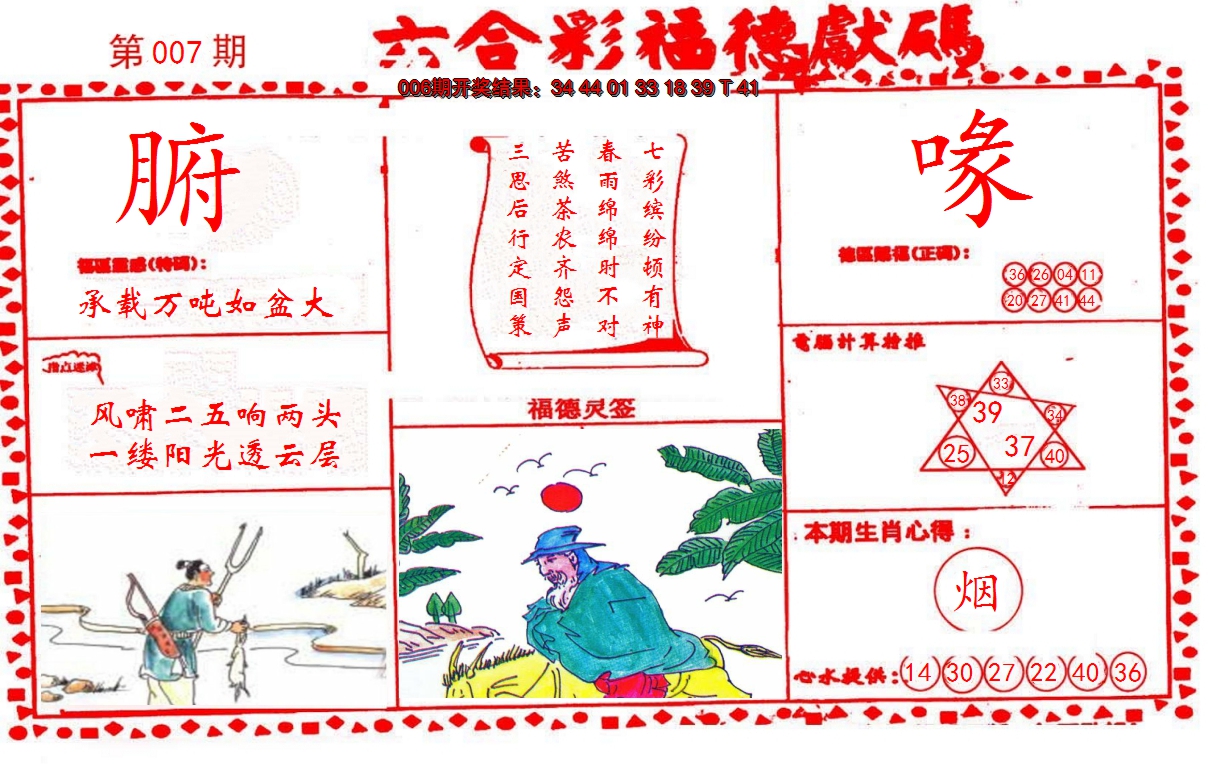 第 007 期
六合彩福德獻碼
006期开奖结果：34 44 01 33 18 39 T 41
腑
福區靈感(特碼)：
承载万吨如盆大
指点迷津
风啸二五响两头
一缕阳光透云层
七彩缤纷顿有神
春雨绵绵时不对
苦煞茶农齐怨声
三思后行定国策
福德灵签
喙
德區賜福(正碼)：
36 26 04 11
20 27 41 44
電腦計算榜推
33
38 39 34
25 37 40
12
本期生肖心得：
烟
心水提供:14 30 27 22 40 36